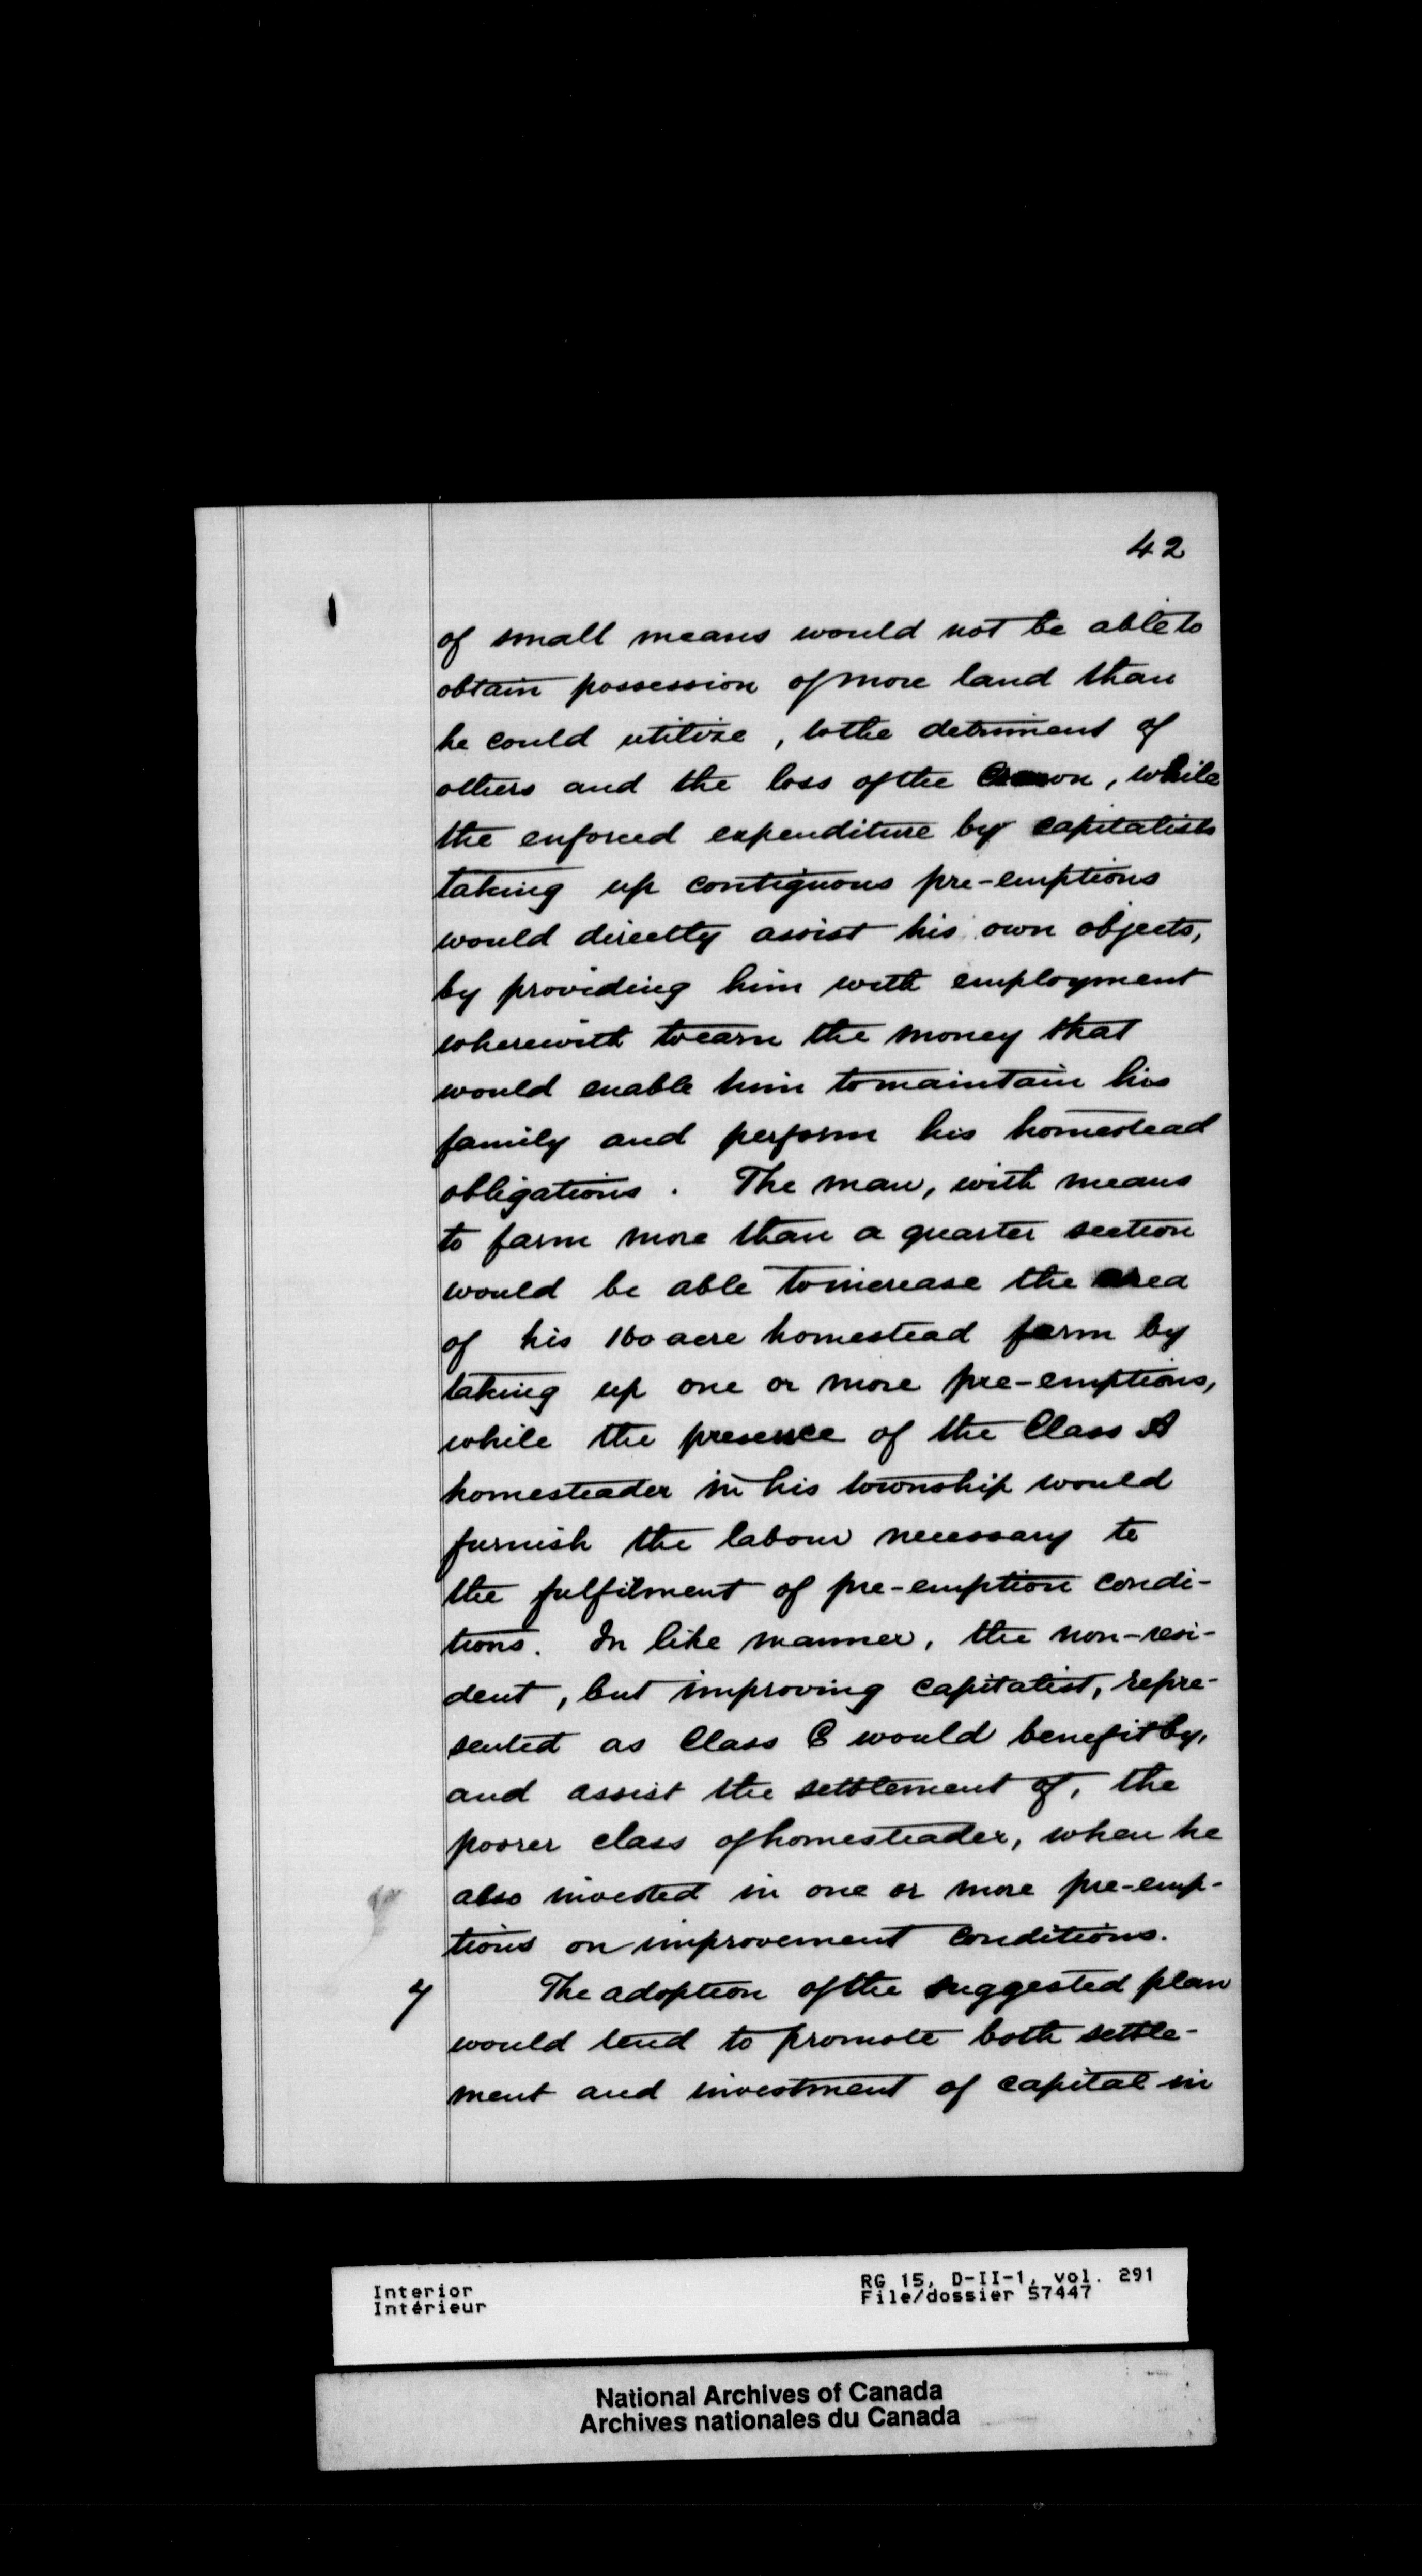 42
of small means would not be able to
obtain possession of more land than
he could utilize, to the detriment of
others and the loss of the Crown, while
the enforced expenditure by capitalists
taking up contiguous pre-emptions
would directly assist his own objects,
by providing him with employment
wherewith to earn the money that
would enable him to maintain his
family and perform his homestead
obligations. The man, with means
to farm more than a quarter section
would be able to increase the area
of his 160 acre homestead farm by
taking up one or more pre-emptions,
while the presence of the Class A
homesteader in his township would
furnish the labour necessary to
the fulfilment of pre-emption condi-
tions. In like manner, the non-resi-
dent, but improving capitalist, repre-
sented as Class C would benefit by,
and assist the settlement of, the
poorer class of homesteader, when he
also invested in one or more pre-emp-
tions on improvement conditions.
The adoption of the suggested plan
would tend to promote both settle-
ment and investment of capital in
Interior
Intérieur
RG 15, D-II-1, vol. 291
File/dossier 57447
National Archives of Canada
Archives nationales du Canada